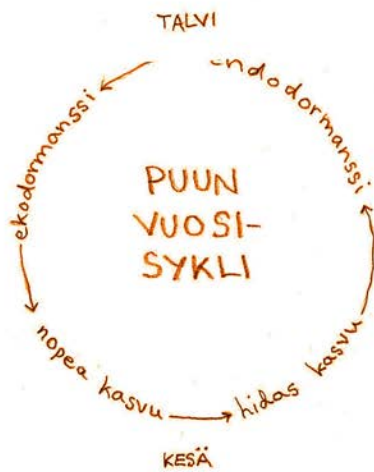 TALVI
endodormanssi
ekodormanssi
PUUN
VUOSI-
SYKLI
nopea kasvu
hidas kasvu
KESÄ